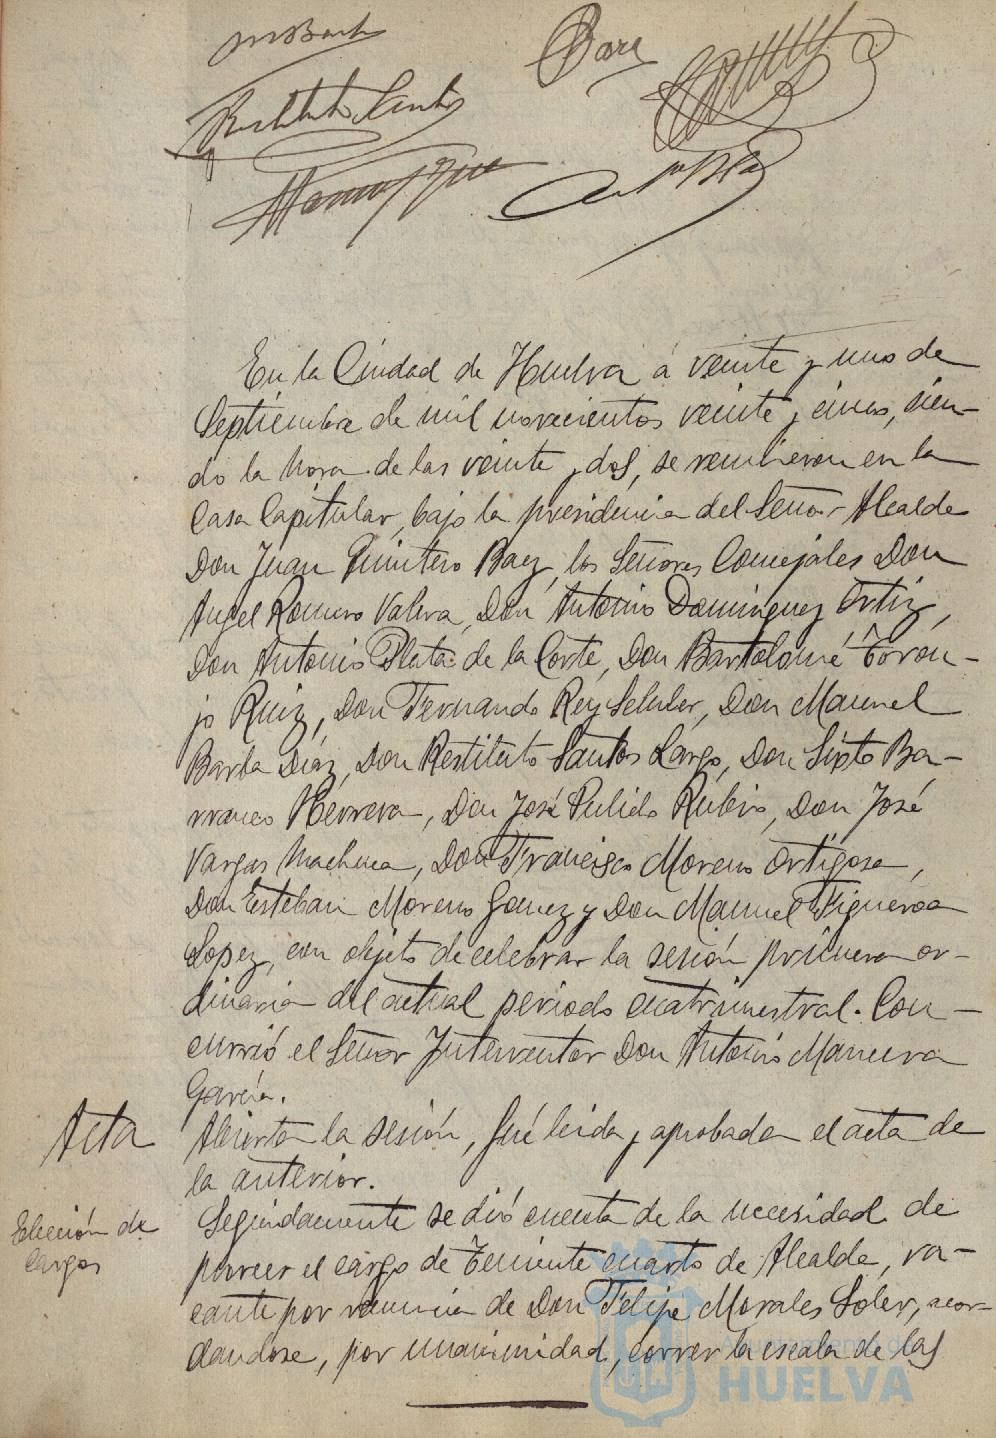 M Barba
Báez
Restituto Santos
En la Ciudad de Huelva a veinte y uno de
Septiembre de mil novecientos veinte y cinco, sien-
do la hora de las veinte y dos, se reunieron en la
Casa Capitular, bajo la presidencia del Señor Alcalde
Don Juan Quintero Baez, los Señores Concejales Don
Angel Romero Valera, Don Antonio Dominguez Ortiz,
Don Antonio Plata de la Corte, Don Bartolomé Toron-
jo Ruiz, Don Fernando Rey Don Manuel
Barba Díaz, Don Restituto Santos Largo, Don Sixto Ba-
rranco Herrera, Don José Pulido Rubio, Don José
Vargas Machuca, Don Francisco Moreno Ortigosa,
Don Esteban Moreno Gomez y Don Manuel Figueroa
Lopez, con objeto de celebrar la sesión primera or-
dinaria del actual periodo cuatrimestral. Con-
currió el Señor Interventor Don Antonio Manuera
García.
Acta
Abierta la sesión, fué leida y aprobada el acta de
la anterior.
Elección de
cargos
Seguidamente se dió cuenta de la necesidad de
proveer el cargo de Teniente cuarto de Alcalde, va-
cante por renuncia de Don Felipe Morales Soler, acor-
dandose, por unanimidad, correr la escala de las
Ayuntamiento de
HUELVA